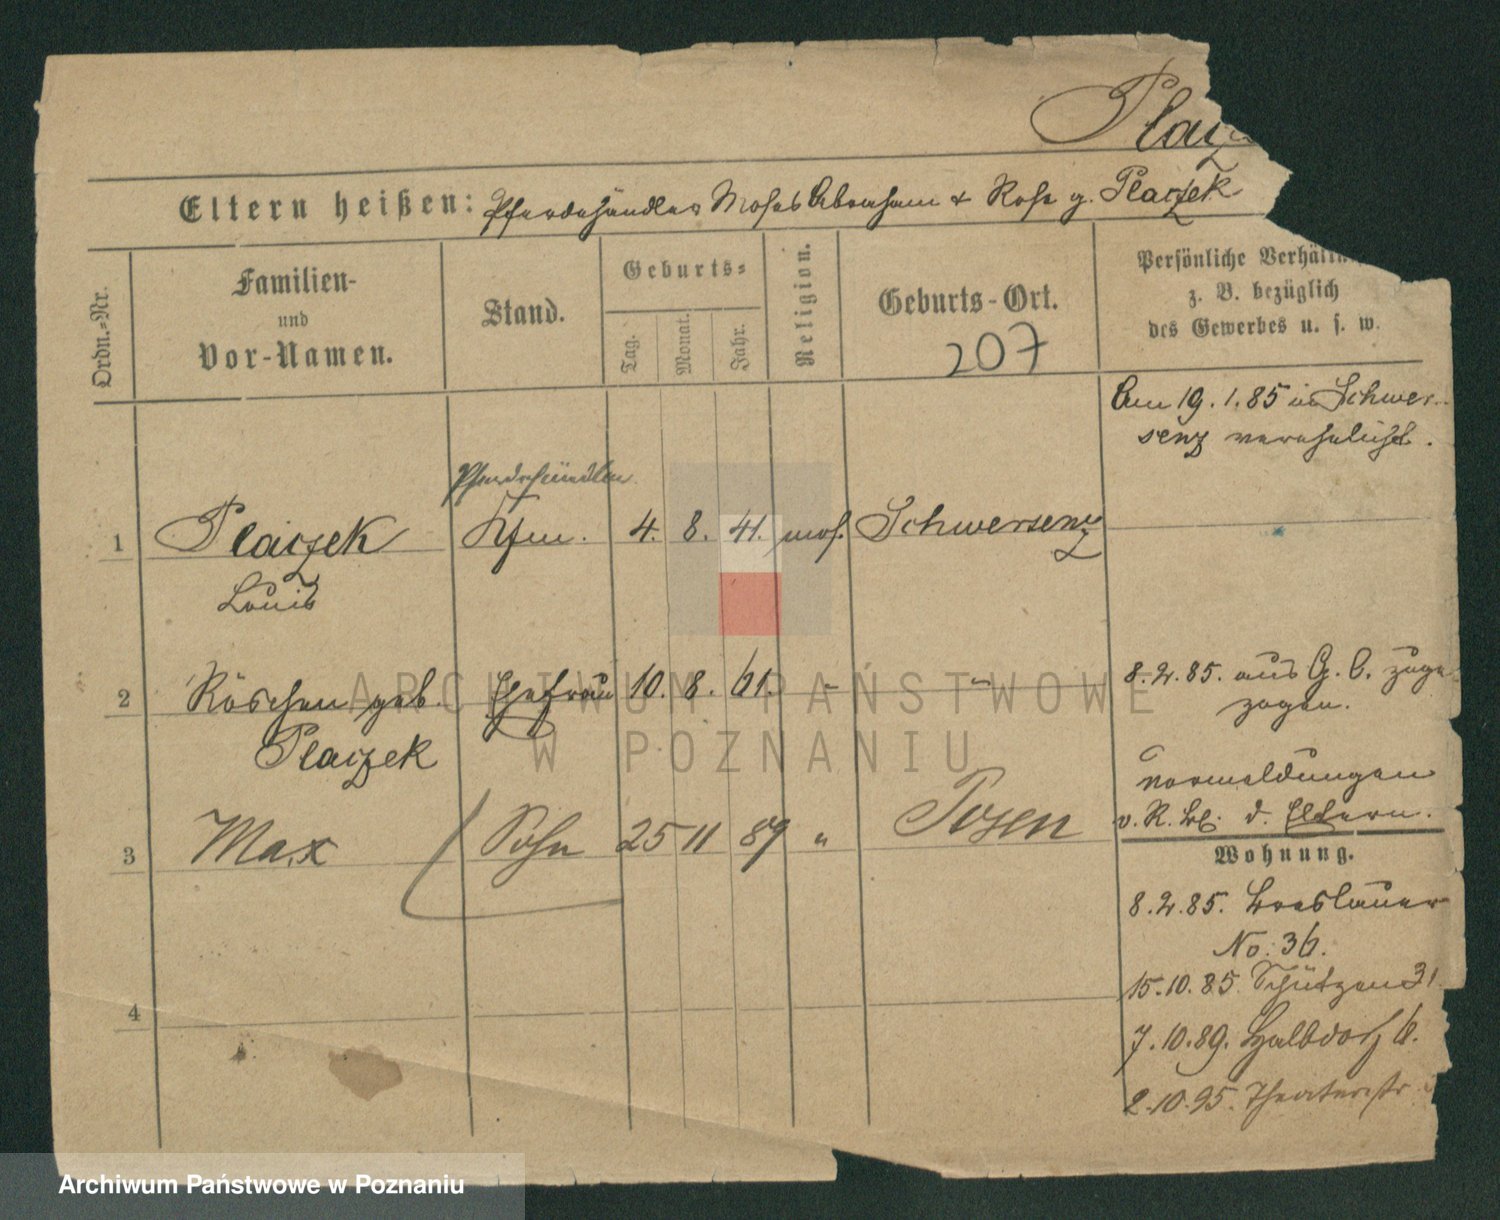 Plaz
Eltern heißen: Pferdehändler Moses Abraham & Rosa g. Placzek
Ordn.=Nr.
Familien-
und
Vor-Namen.
Stand.
Geburts=
Tag.
Monat.
Jahr.
Religion.
Geburts-Ort.
207
Persönliche Verhält
z. B. bezüglich
des Gewerbes u. s. w.
Am 19.1.85 in Schwer-
senz verehelicht.
Pferdehändler
1 Placzek Kfm. 4. 8. 41. mos. Schwersenz
Louis
2 Röschen geb. Ehefrau 10. 8. 61. " "
Placzek
8.2.85. aus G. C. zuge
zogen.
vormeldungen
v. R. d. Eltern.
3 Max Sohn 25 11 89 " Posen
Wohnung.
8.2.85. Breslauer
No. 36.
15.10.85. Schützen 31
4
7.10.89. Halbdorf 6.
2.10.95. Theaterstr
ARCHIWUM PAŃSTWOWE
W POZNANIU
Archiwum Państwowe w Poznaniu